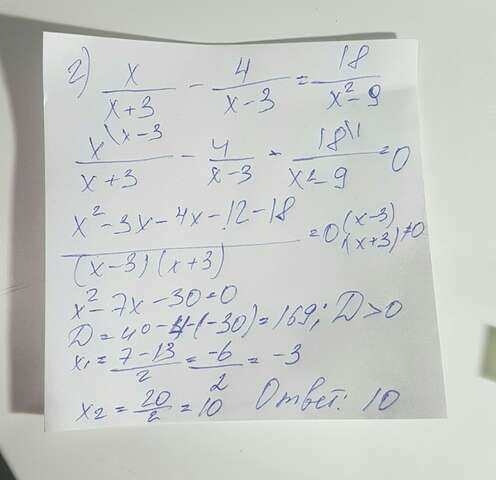 2) x/(x+3) - 4/(x-3) = 18/(x²-9)
x\x-3/(x+3) - 4/(x-3) - 18\1/(x²-9) = 0
(x²-3x-4x-12-18)/((x-3)(x+3)) = 0 (x-3)(x+3)≠0
x²-7x-30=0
D = 49-4·(-30)=169; D>0
x₁ = (7-13)/2 = -6/2 = -3
x₂ = 20/2 = 10 Ответ: 10